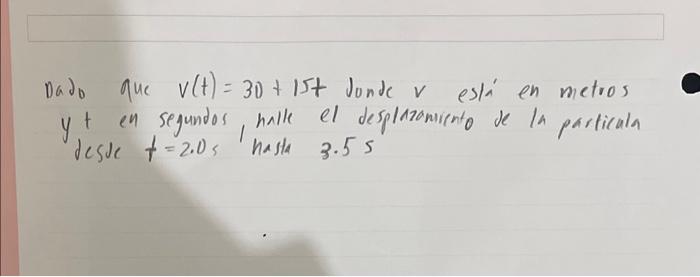 Dado que v(t) = 30 + 15t donde v está en metros
y t en segundos, halle el desplazamiento de la particula
desde t = 2.0 s hasta 3.5 s